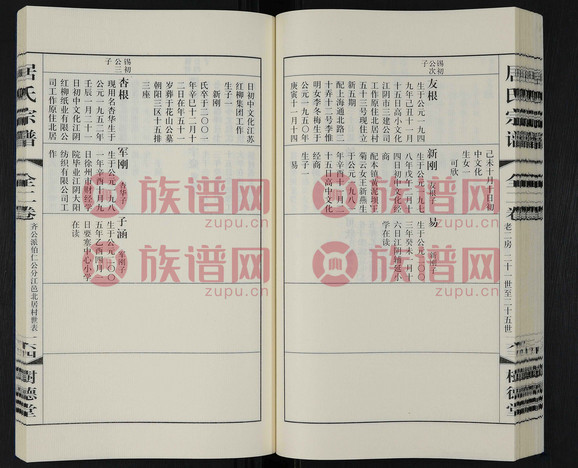 居氏宗譜
全二卷
老二房 二十一世至二十五世
己未十月十日初
中文化
生女一
可欣
锡初
公次
子
友根
生于公元一九四
九年己丑十一月
十五日高小文化
江阴市三建公司
工作原住居北村
五十三号现住村
配上海通北路二
十弄十二号李惟
明女李冬梅生于
公元一九五〇年
庚寅十一月十四
新刚
友根子
生于公元一九七
八年戊午二月十
四日初中文化经
商
配本镇黄泥坝王
菊云女王新燕生
于公元一九八一
年辛酉十二月二
十五日高中文化
经商
生子一
易
易
新刚子
生于公元二〇〇
三年癸未三月十
六日江阴辅延小
学在读
日初中文化江苏
红柳集团工作
生子一
新刚
氏卒于二〇〇一
年辛巳十一月十
二日在年五十二
岁葬于花山公墓
朝阳三区十五排
三座
锡初
公三
子
杏根
现用名杏华生于
公元一九五二年
壬辰一月二十一
日初中文化江阴
红柳纸业有限公
司工作原住北居
军刚
杏华子
生于公元一九八
一年辛酉十月九
日徐州市财经学
院毕业江阴大阳
纺织有限公司工
作
子涵
军刚子
生于公元二〇〇
五年乙酉四月一
日要塞中心小学
在读
居氏宗譜
全二卷
齐公派伯仁公分江邑北居村世表
樹德堂
族谱网
zupu.cn
族谱网
zupu.cn
族谱网
zupu.cn
族谱网
zupu.cn